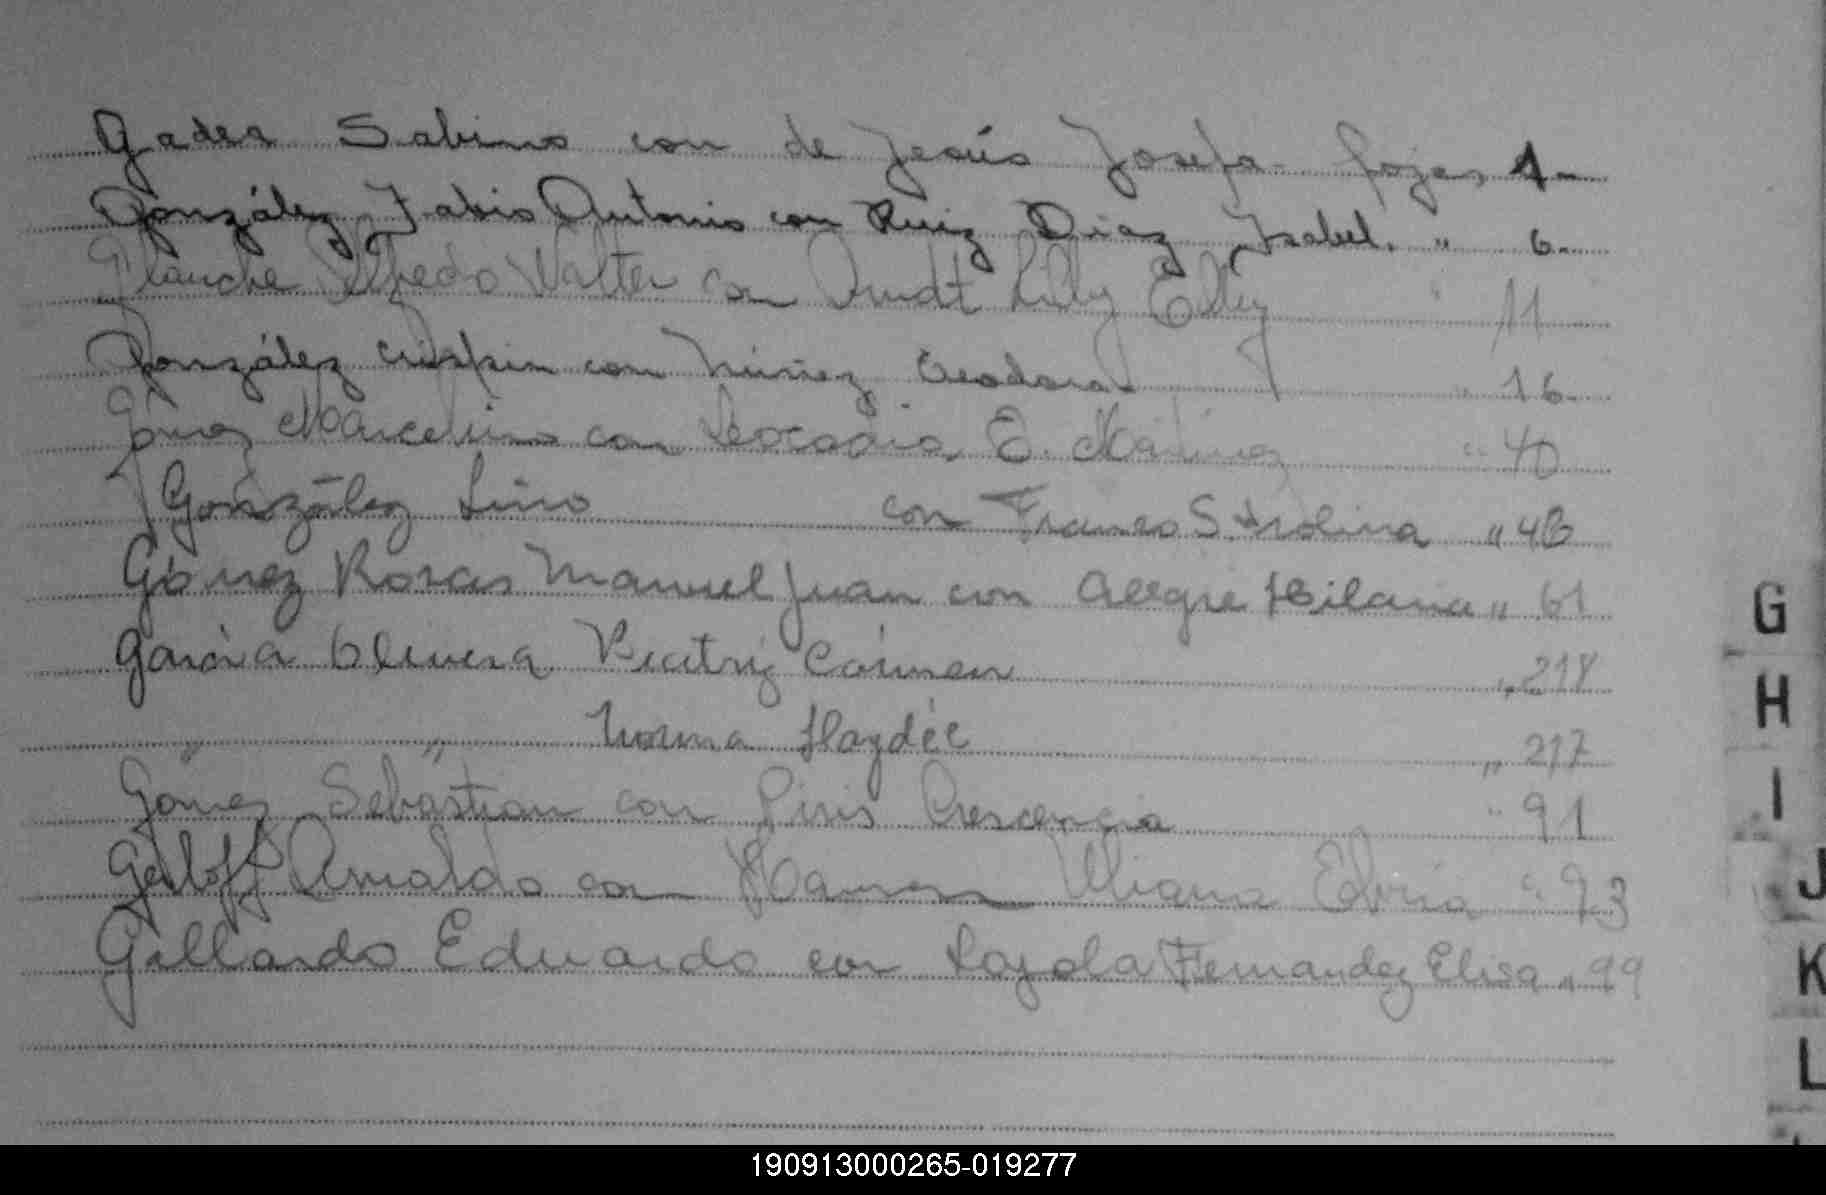 Gadea Sabino con de Jesús Josefa fojas 1-
González Fabio Antonio con Ruiz Diaz Isabel. " 6-
Glanche Alfredo Walter con Arndt Lily Elly " 11
González Crispin con Núñez Teodora " 16-
Gómez Marcelino con Leocadia E. Martínez " 40
González Lino con Franco S. Isolina " 46
Gómez Rosas Manuel Juan con Alegre Hilaria " 61
García Olivera Beatriz Cármen " 218
" " Norma Haydée " 217
Gómez Sebastian con Piris Crescencia " 91
Arnaldo con Elvira " 93
Gallardo Eduardo con Loyola Fernandez Elisa " 99
G
H
I
J
K
L
190913000265-019277